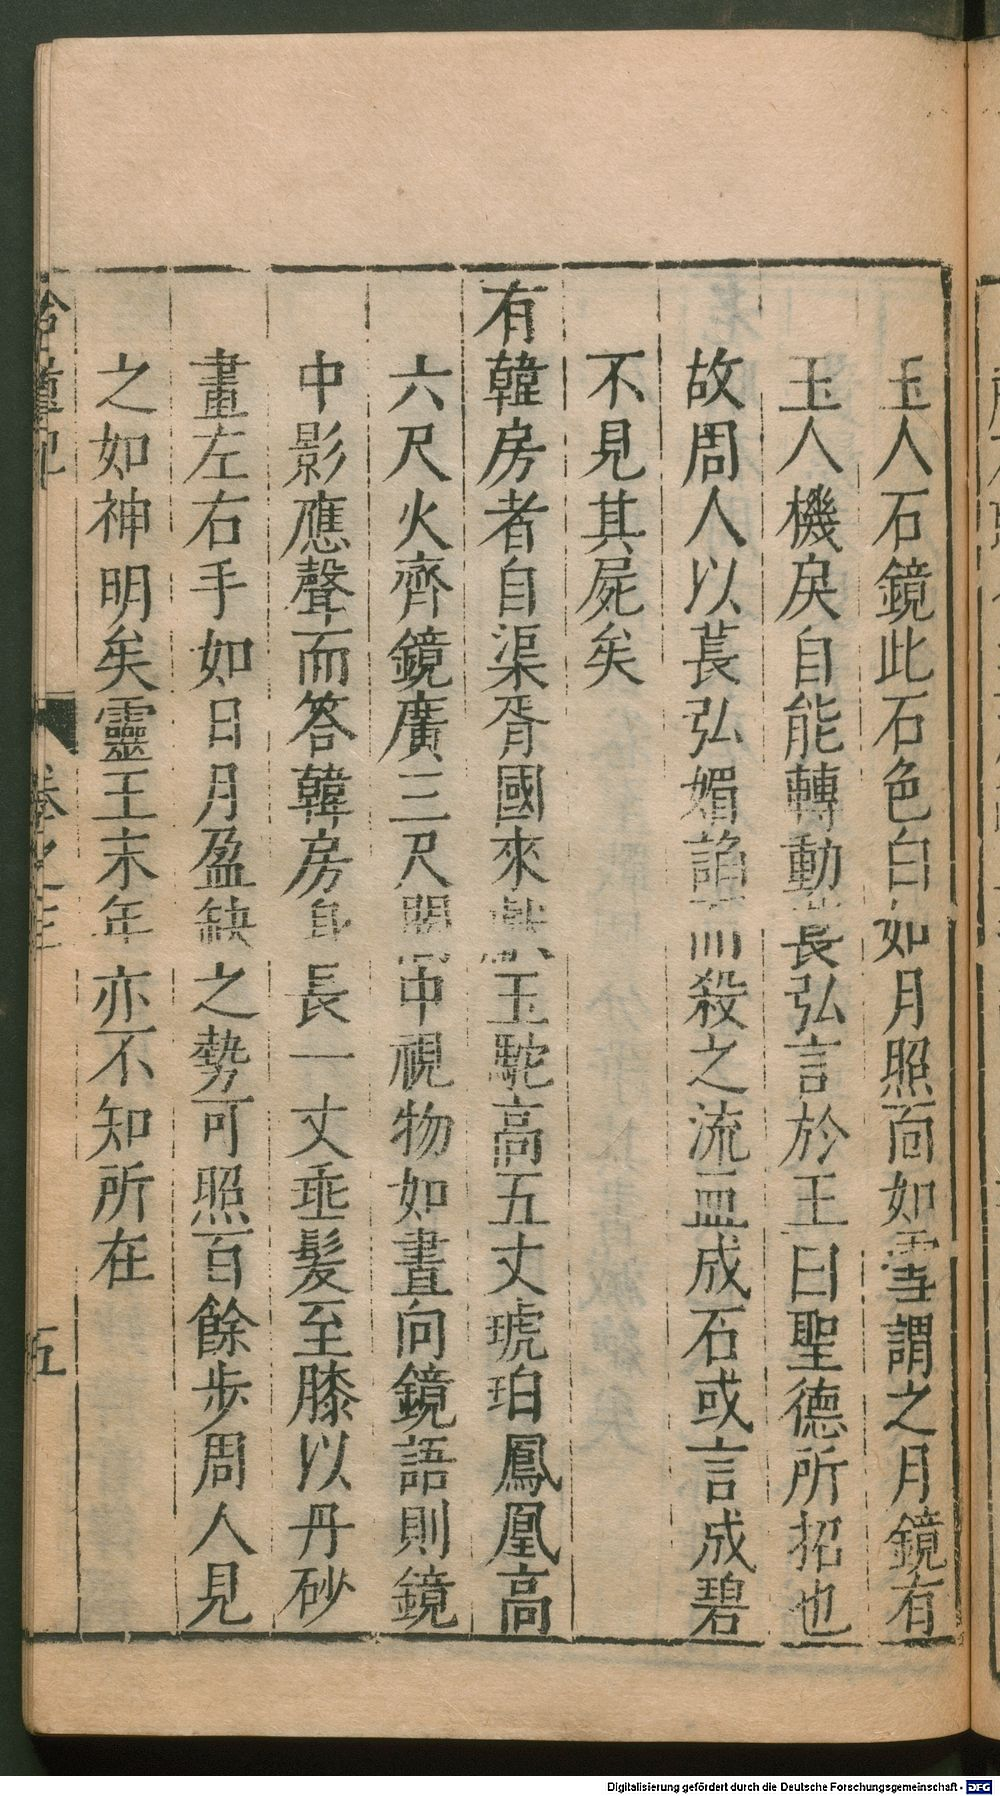 玉人石鏡此石色白如月照面如雪謂之月鏡有
玉人機戾自能轉動萇弘言於王曰聖德所招也
故周人以萇弘媚諂而殺之流血成石或言成碧
不見其屍矣
有韓房者自渠胥國來獻玉駝高五丈琥珀鳳凰高
六尺火齊鏡廣三尺闇中視物如晝向鏡語則鏡
中影應聲而答韓房身長一丈垂髮至膝以丹砂
畫左右手如日月盈缺之勢可照百餘步周人見
之如神明矣靈王末年亦不知所在
拾遺記 卷之三 五
Digitalisierung gefördert durch die Deutsche Forschungsgemeinschaft - DFG